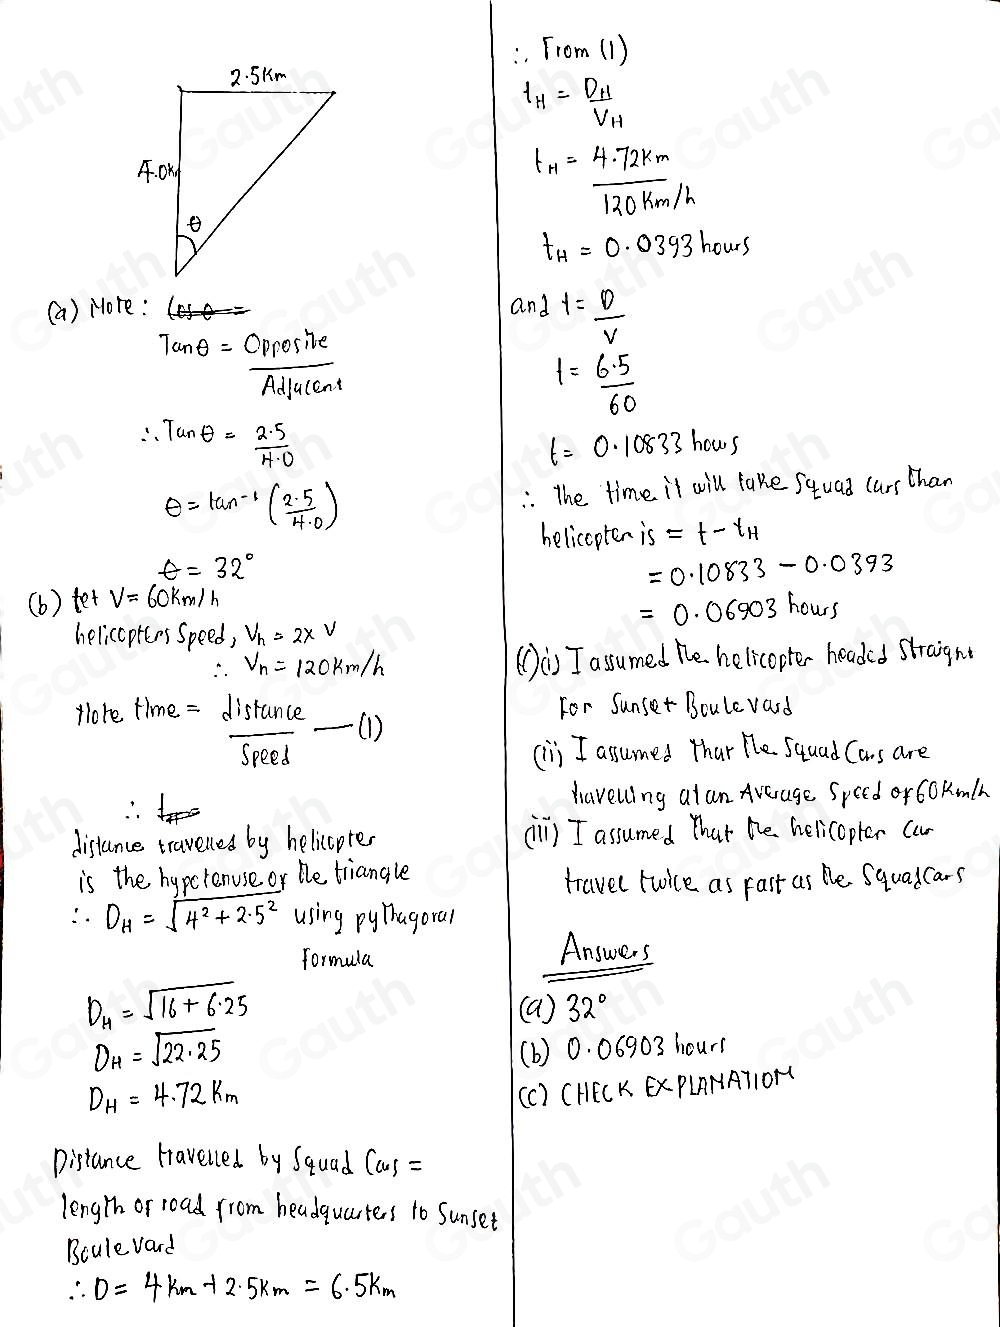 2.5Km
4.0K
θ
(a) Note: Cos θ =
Tanθ = Opposite
Adjacent
∴ Tan θ = 2.5
4.0
θ = tan⁻¹ (2.5
4.0)
θ = 32°
(b) let V = 60Km/h
helicopters Speed, Vh = 2x V
∴ Vh = 120Km/h
Note time = distance — (1)
Speed
∴ tH =
distance travelled by helicopter
is the hypotenuse of the triangle
∴ DH = √4² + 2.5² using pythagoras
formula
DH = √16 + 6.25
DH = √22.25
DH = 4.72 Km
Distance travelled by Squad Cars =
length of road from headquarters to Sunset
Boulevard
∴ D = 4 Km + 2.5Km = 6.5Km
∴ From (1)
tH = DH
VH
tH = 4.72Km
120 Km/h
tH = 0.0393 hours
and t = D
V
t = 6.5
60
t = 0.10833 hours
∴ the time it will take Squad cars than
helicopter is = t - tH
= 0.10833 - 0.0393
= 0.06903 hours
(c)(i) I assumed the helicopter headed Straight
for Sunset Boulevard
(ii) I assumed that the Squad Cars are
travelling at an Average Speed of 60Km/h
(iii) I assumed that the helicopter can
travel twice as fast as the Squad cars
Answers
(a) 32°
(b) 0.06903 hours
(c) CHECK EXPLANATION
Gauth